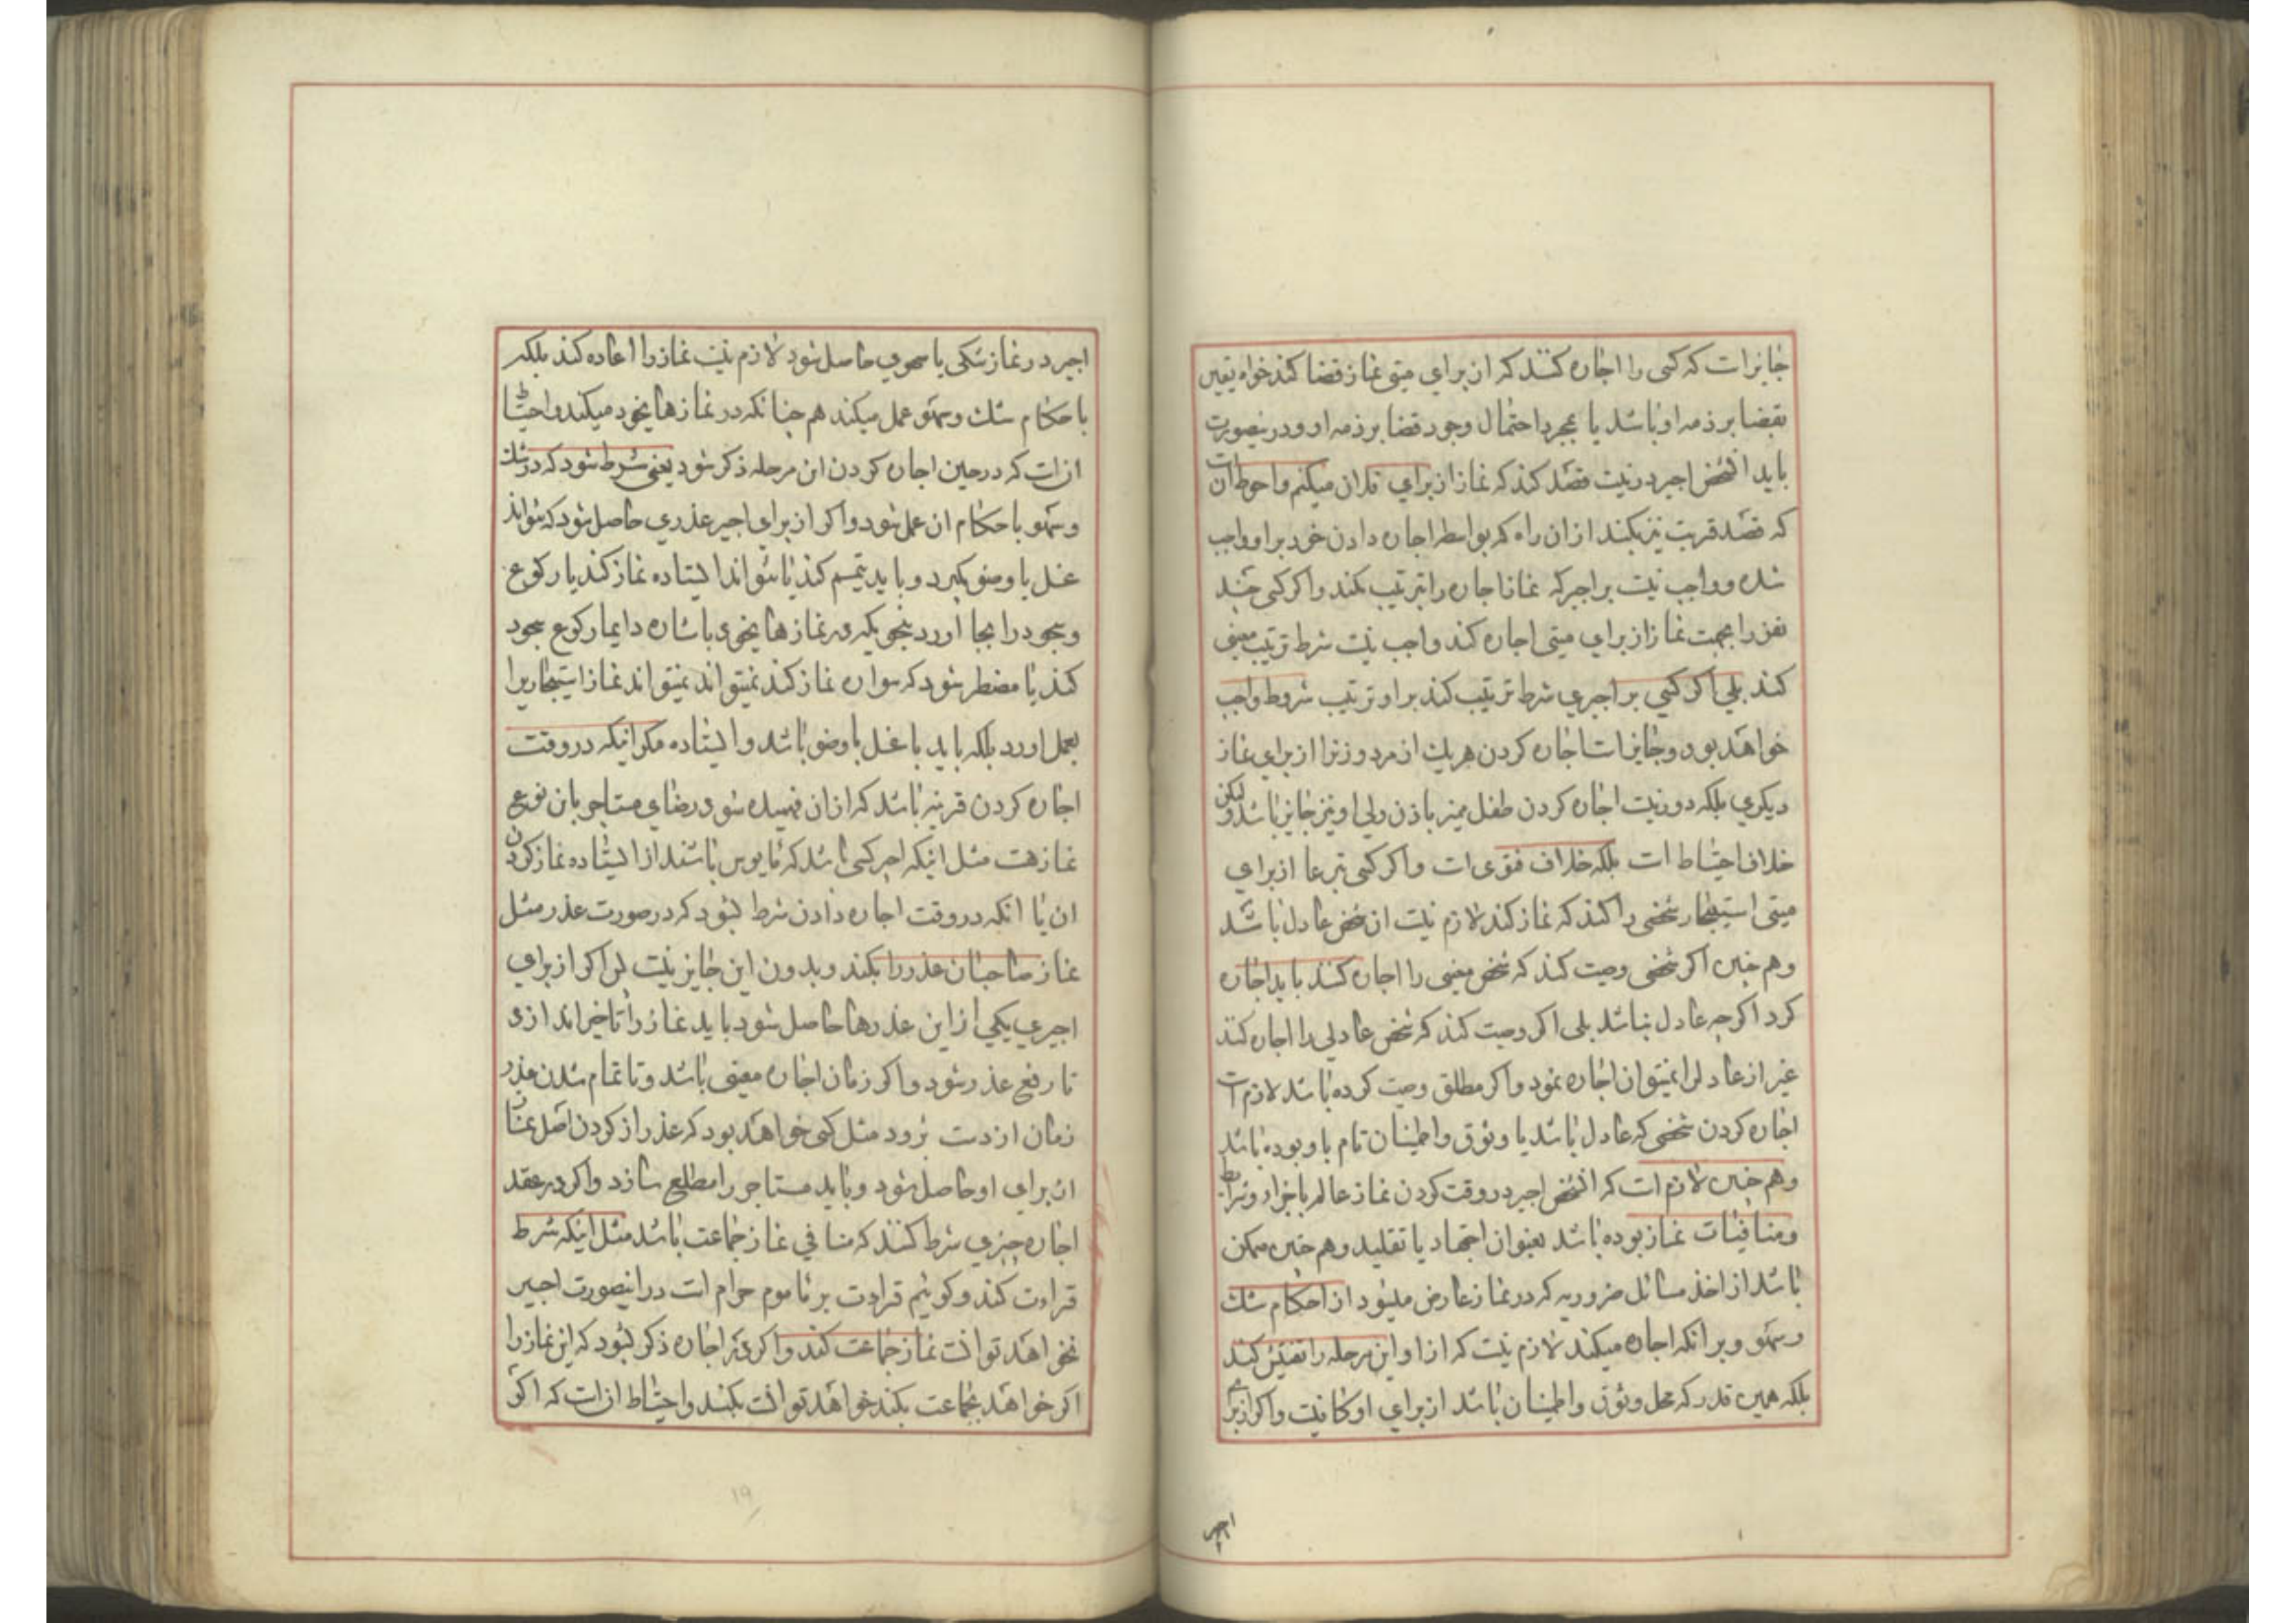 جایز است که کسی را اجاره کنند که از برای میتی نماز قضا کند خواه یقین
بقضا بر ذمه او باشد یا بمجرد احتمال وجود قضا بر ذمه او و درینصورت
باید انشخص اجیر در نیت قصد کند که نماز از برای فلان میکنم و احوط ان است
که قصد قربت نیز بکند از ان راه که بواسطه اجاره دادن خود بر او واجب
شده و واجب نیست بر اجیر که نماز اجاره را بترتیب بکند و اکر کسی چند
نفر را بجهت نماز از برای میتی اجاره کند واجب نیست شرط ترتیب معینی
کند بلی اکر کسی بر اجیری شرط ترتیب کند بر او ترتیب شروط واجب
خواهد بود و جایز است اجاره کردن هر یک از مرد و زنرا از برای نماز
دیکری بلکه دور نیست اجاره کردن طفل ممیز باذن ولی او نیز جایز باشد و لیکن
خلاف احتیاط است بلکه خلاف فتوی است و اکر کسی تبرعا از برای
میتی استیجار شخصی را کند که نماز کند لازم نیست ان شخص عادل باشد
و هم چنین اکر شخصی وصیت کند که شخص معینی را اجاره کنند باید اجاره
کرد اکرچه عادل نباشد بلی اکر وصیت کند که شخص عادلی را اجاره کنند
غیر از عادل را نمیتوان اجاره نمود و اکر مطلق وصیت کرده باشد لازم است
اجاره کردن شخصی که عادل باشد یا وثوق و اطمینان تام باو بوده باشد
و هم چنین لازم است که انشخص اجیر در وقت کردن نماز عالم باجزاء و شرایط
و منافیات نماز بوده باشد بعنوان اجتهاد یا تقلید و هم چنین ممکن
باشد از اخذ مسائل ضروریه که در نماز عارض میشود از احکام شک
و سهو و بر انکه اجاره میکند لازم نیست که از او این مرحله را تفتیش کند
بلکه همین قدر که محل وثوق و اطمینان باشد از برای او کافیست و اکر از برای
اجیر
اجیر در نماز شکی یا سهوی حاصل شود لازم نیست نماز را اعاده کند بلکه
باحکام شک و سهو عمل میکند هم چنانکه در نمازهای خود میکند و احتیاط
ان است که در حین اجاره کردن این مرحله ذکر شود یعنی شرط شود که در شک
و سهو باحکام ان عمل شود و اکر از برای اجیر عذری حاصل شود که نتواند
غسل یا وضو بکیرد و باید تیمم کند یا نتواند ایستاده نماز کند یا رکوع
و سجود را بجا اورد بنحویکه در نمازها بنحوی باشاره و ایما رکوع سجود
کند یا مضطر شود که سواره نماز کند نمیتواند نمیتواند نماز استیجاریرا
بعمل اورد بلکه باید با غسل با وضو باشد و ایستاده مکر اینکه در وقت
اجاره کردن قرینه باشد که از ان فهمیده شود رضای مستاجر بان نوع
نماز هست مثل اینکه اجیر کسی باشد که مایوس باشند از ایستاده نماز کردن
ان یا انکه در وقت اجاره دادن شرط بشود که در صورت عذر مثل
نماز صاحبان عذر را بکند و بدون این جایز نیست پس اکر از برای
اجیری یکی از این عذرها حاصل شود باید نماز را تاخیر اندازی
تا رفع عذر شود و اکر زمان اجاره معینی باشد و تا تمام شدن عذر
زمان از دست برود مثل کسی خواهد بود که عذر از کردن اصل نماز
از برای او حاصل شود و باید مستاجر را مطلع سازد و اکر در عقد
اجاره چیزی شرط کنند که منافی نماز جماعت باشد مثل اینکه شرط
قراءت کند و کوئیم قراءت بر ماموم حرام است در اینصورت اجیر
نخواهد توانست نماز جماعت کند و اکر در اجاره ذکر بشود که این نماز را
اکر خواهد بجماعت بکند خواهد توانست بکند و احتیاط ان است که اکر
۱۹